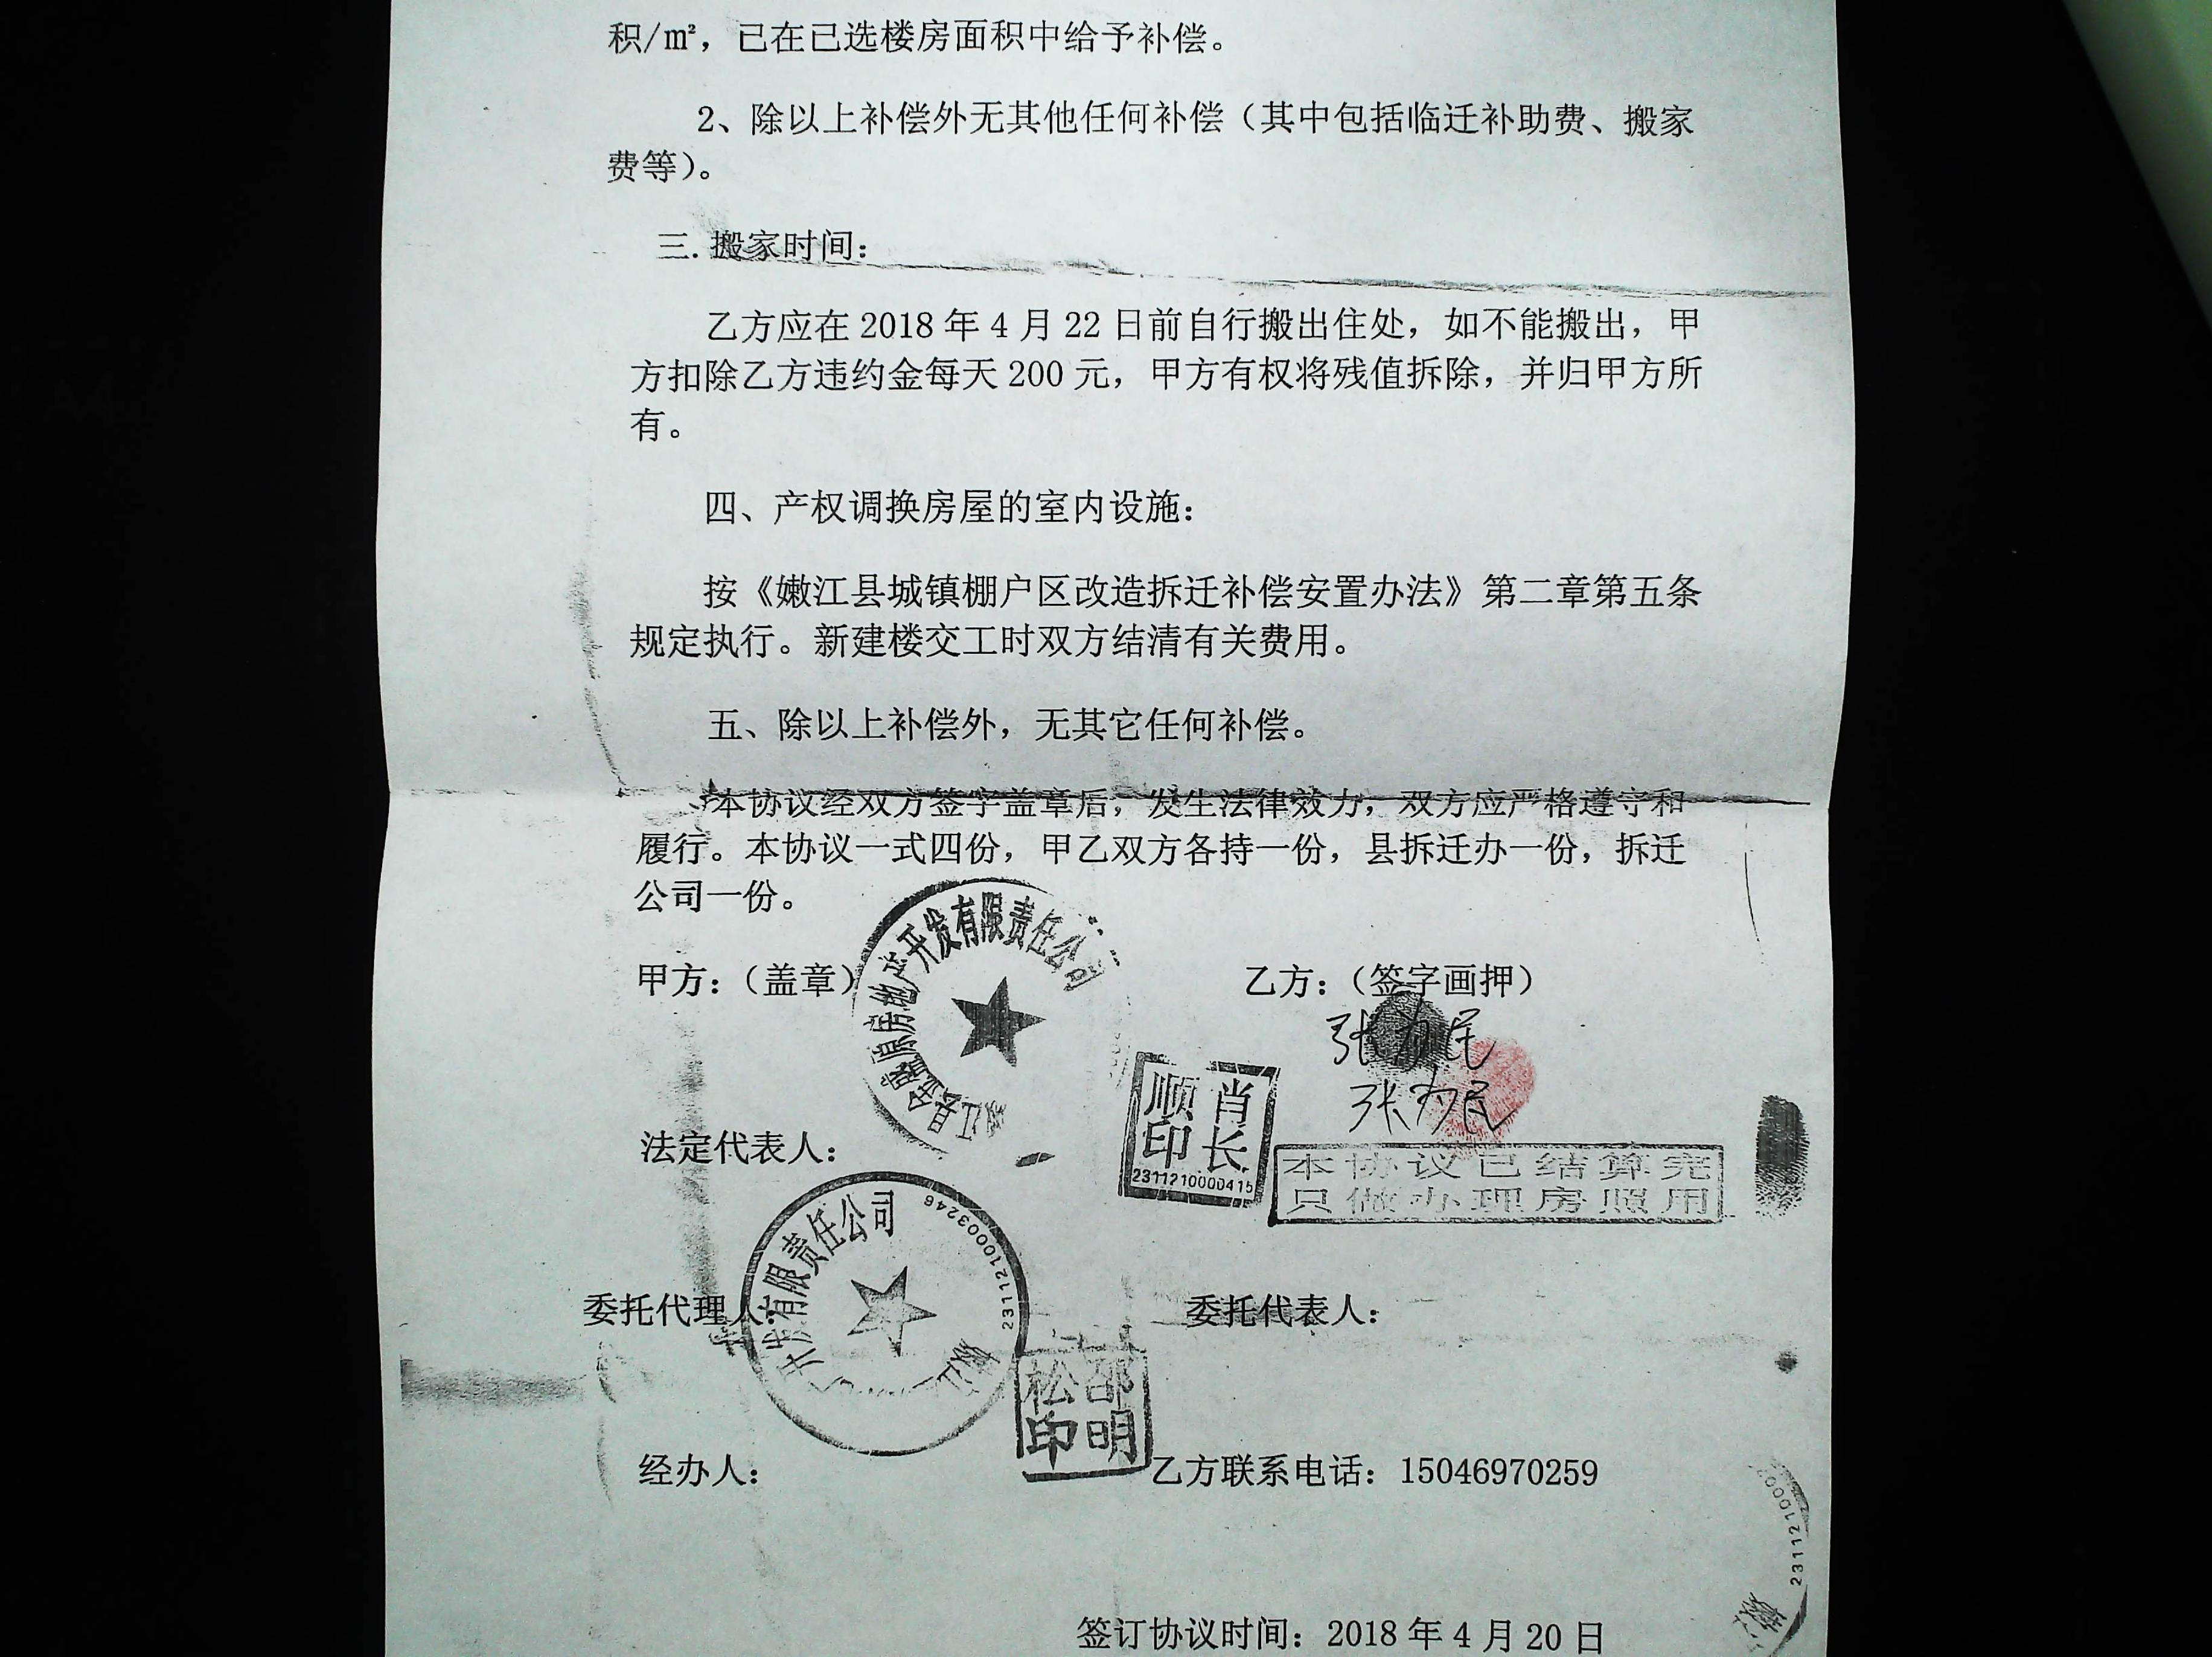 积/㎡，已在已选楼房面积中给予补偿。
2、除以上补偿外无其他任何补偿（其中包括临迁补助费、搬家
费等）。
三.搬家时间：
乙方应在 2018 年 4 月 22 日前自行搬出住处，如不能搬出，甲
方扣除乙方违约金每天 200 元，甲方有权将残值拆除，并归甲方所
有。
四、产权调换房屋的室内设施：
按《嫩江县城镇棚户区改造拆迁补偿安置办法》第二章第五条
规定执行。新建楼交工时双方结清有关费用。
五、除以上补偿外，无其它任何补偿。
本协议经双方签字盖章后，发生法律效力，双方应严格遵守和
履行。本协议一式四份，甲乙双方各持一份，县拆迁办一份，拆迁
公司一份。
甲方：（盖章）
江县金融原房地产开发有限责任公司
乙方：（签字画押）
张为民
张为民
法定代表人：
肖长顺印
2311210000415
本协议已结算完
只做办理房照用
开发有限责任公司
2311210003246
委托代理人：
委托代表人：
邵明松印
经办人：
乙方联系电话：15046970259
231121000
签订协议时间：2018 年 4 月 20 日